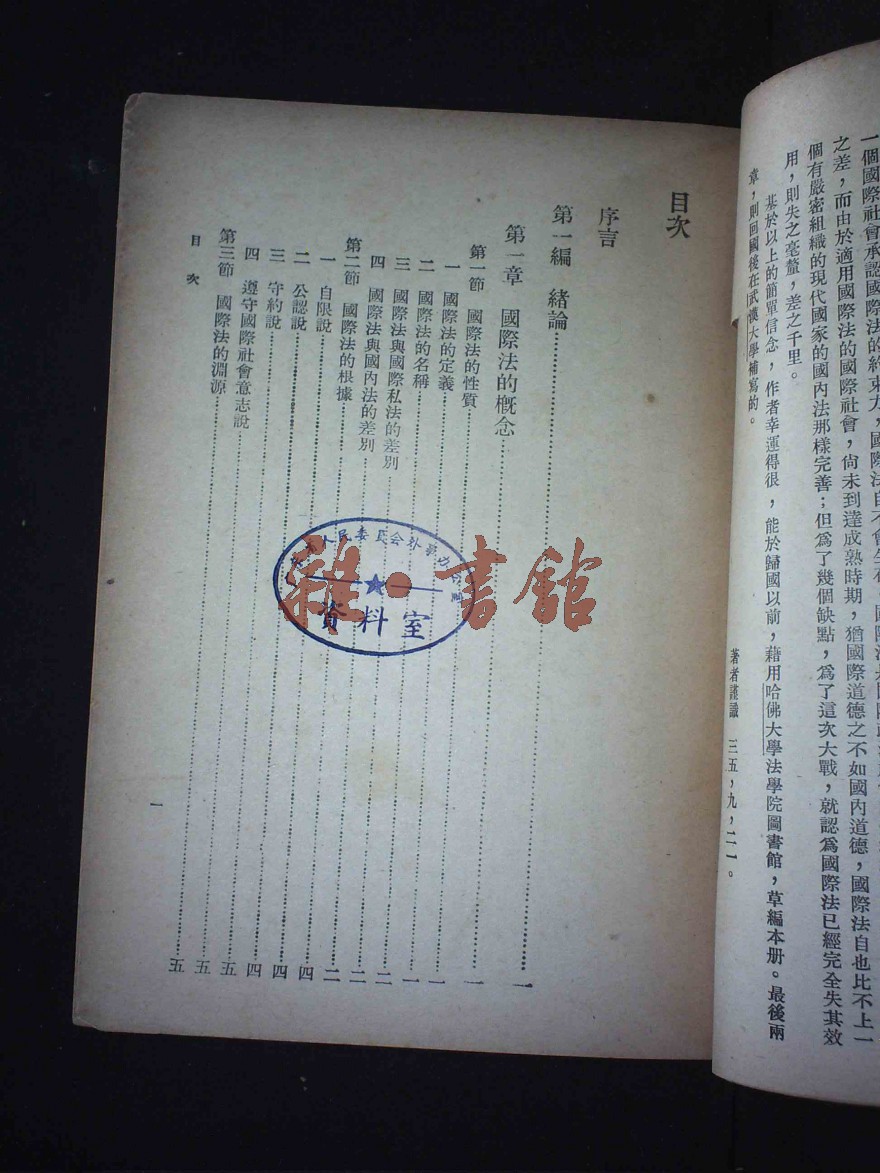 一個國際社會承認國際法的約束力，國際法自不會生
之差，而由於適用國際法的國際社會，尚未到達成熟時期，猶國際道德之不如國內道德，國際法自也比不上一
個有嚴密組織的現代國家的國內法那樣完善；但爲了幾個缺點，爲了這次大戰，就認爲國際法已經完全失其效
用，則失之毫釐，差之千里。
基於以上的簡單信念，作者幸運得很，能於歸國以前，藉用哈佛大學法學院圖書館，草編本册。最後兩
章，則回國後在武漢大學補寫的。
著者謹識　三五，九，二一。
目次
序言
第一編　緒論……一
第一章　國際法的概念……一
第一節　國際法的性質……一
一　國際法的定義……一
二　國際法的名稱……二
三　國際法與國際私法的差別……二
四　國際法與國內法的差別……二
第二節　國際法的根據……四
一　自限說……四
二　公認說……四
三　守約說……五
四　遵守國際社會意志說……五
第三節　國際法的淵源……五
目次
一
人民委員会外事办公室
資料室
雜·書館